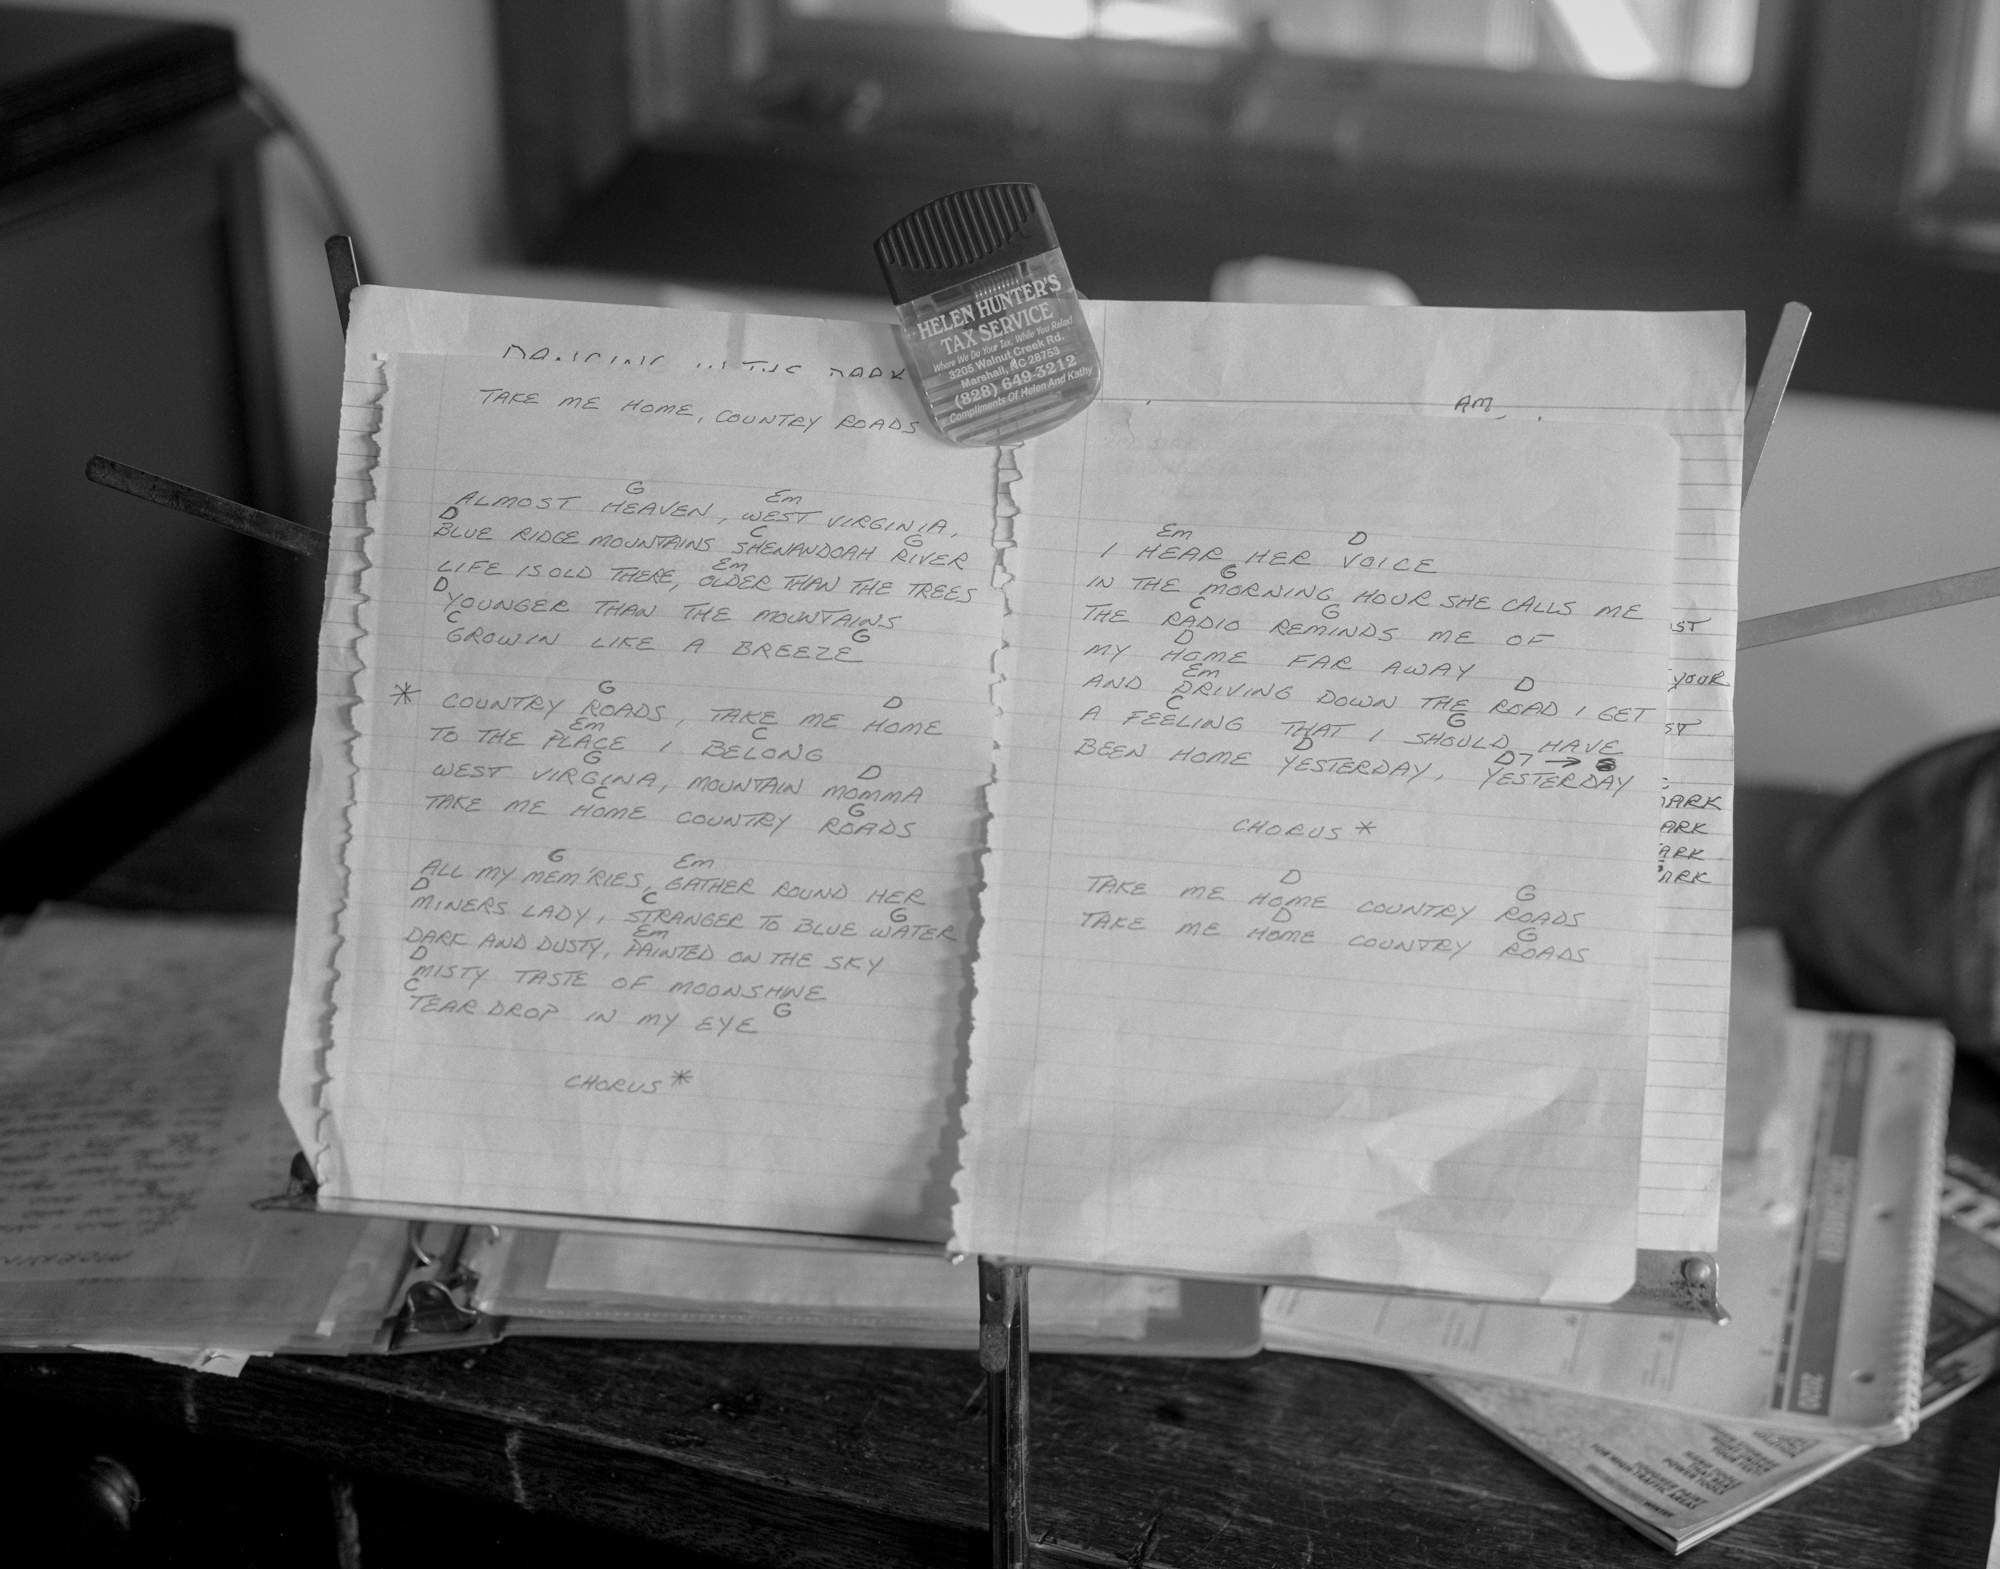 HELEN HUNTER'S
TAX SERVICE
Where We Do Your Tax, While You Relax!
3205 Walnut Creek Rd.
Marshall, NC 28753
(828) 649-3212
Compliments Of Helen And Kathy
IN THE DARK
TAKE ME HOME, COUNTRY ROADS
G Em
ALMOST HEAVEN, WEST VIRGINIA,
D C G
BLUE RIDGE MOUNTAINS SHENANDOAH RIVER
Em
LIFE IS OLD THERE, OLDER THAN THE TREES
D
YOUNGER THAN THE MOUNTAINS
C G
GROWIN LIKE A BREEZE
G D
* COUNTRY ROADS, TAKE ME HOME
Em C
TO THE PLACE I BELONG
G D
WEST VIRGINA, MOUNTAIN MOMMA
C G
TAKE ME HOME COUNTRY ROADS
G Em
ALL MY MEM'RIES, GATHER ROUND HER
D C G
MINERS LADY, STRANGER TO BLUE WATER
Em
DARK AND DUSTY, PAINTED ON THE SKY
D
MISTY TASTE OF MOONSHINE
C G
TEAR DROP IN MY EYE
CHORUS *
AM
Em D
I HEAR HER VOICE
G
IN THE MORNING HOUR SHE CALLS ME
C G
THE RADIO REMINDS ME OF
D
MY HOME FAR AWAY
Em D
AND DRIVING DOWN THE ROAD I GET
C G
A FEELING THAT I SHOULD HAVE
D D7 →
BEEN HOME YESTERDAY, YESTERDAY
CHORUS *
D G
TAKE ME HOME COUNTRY ROADS
D G
TAKE ME HOME COUNTRY ROADS
YOUR
ARK
ARK
ARK
ARK
2020